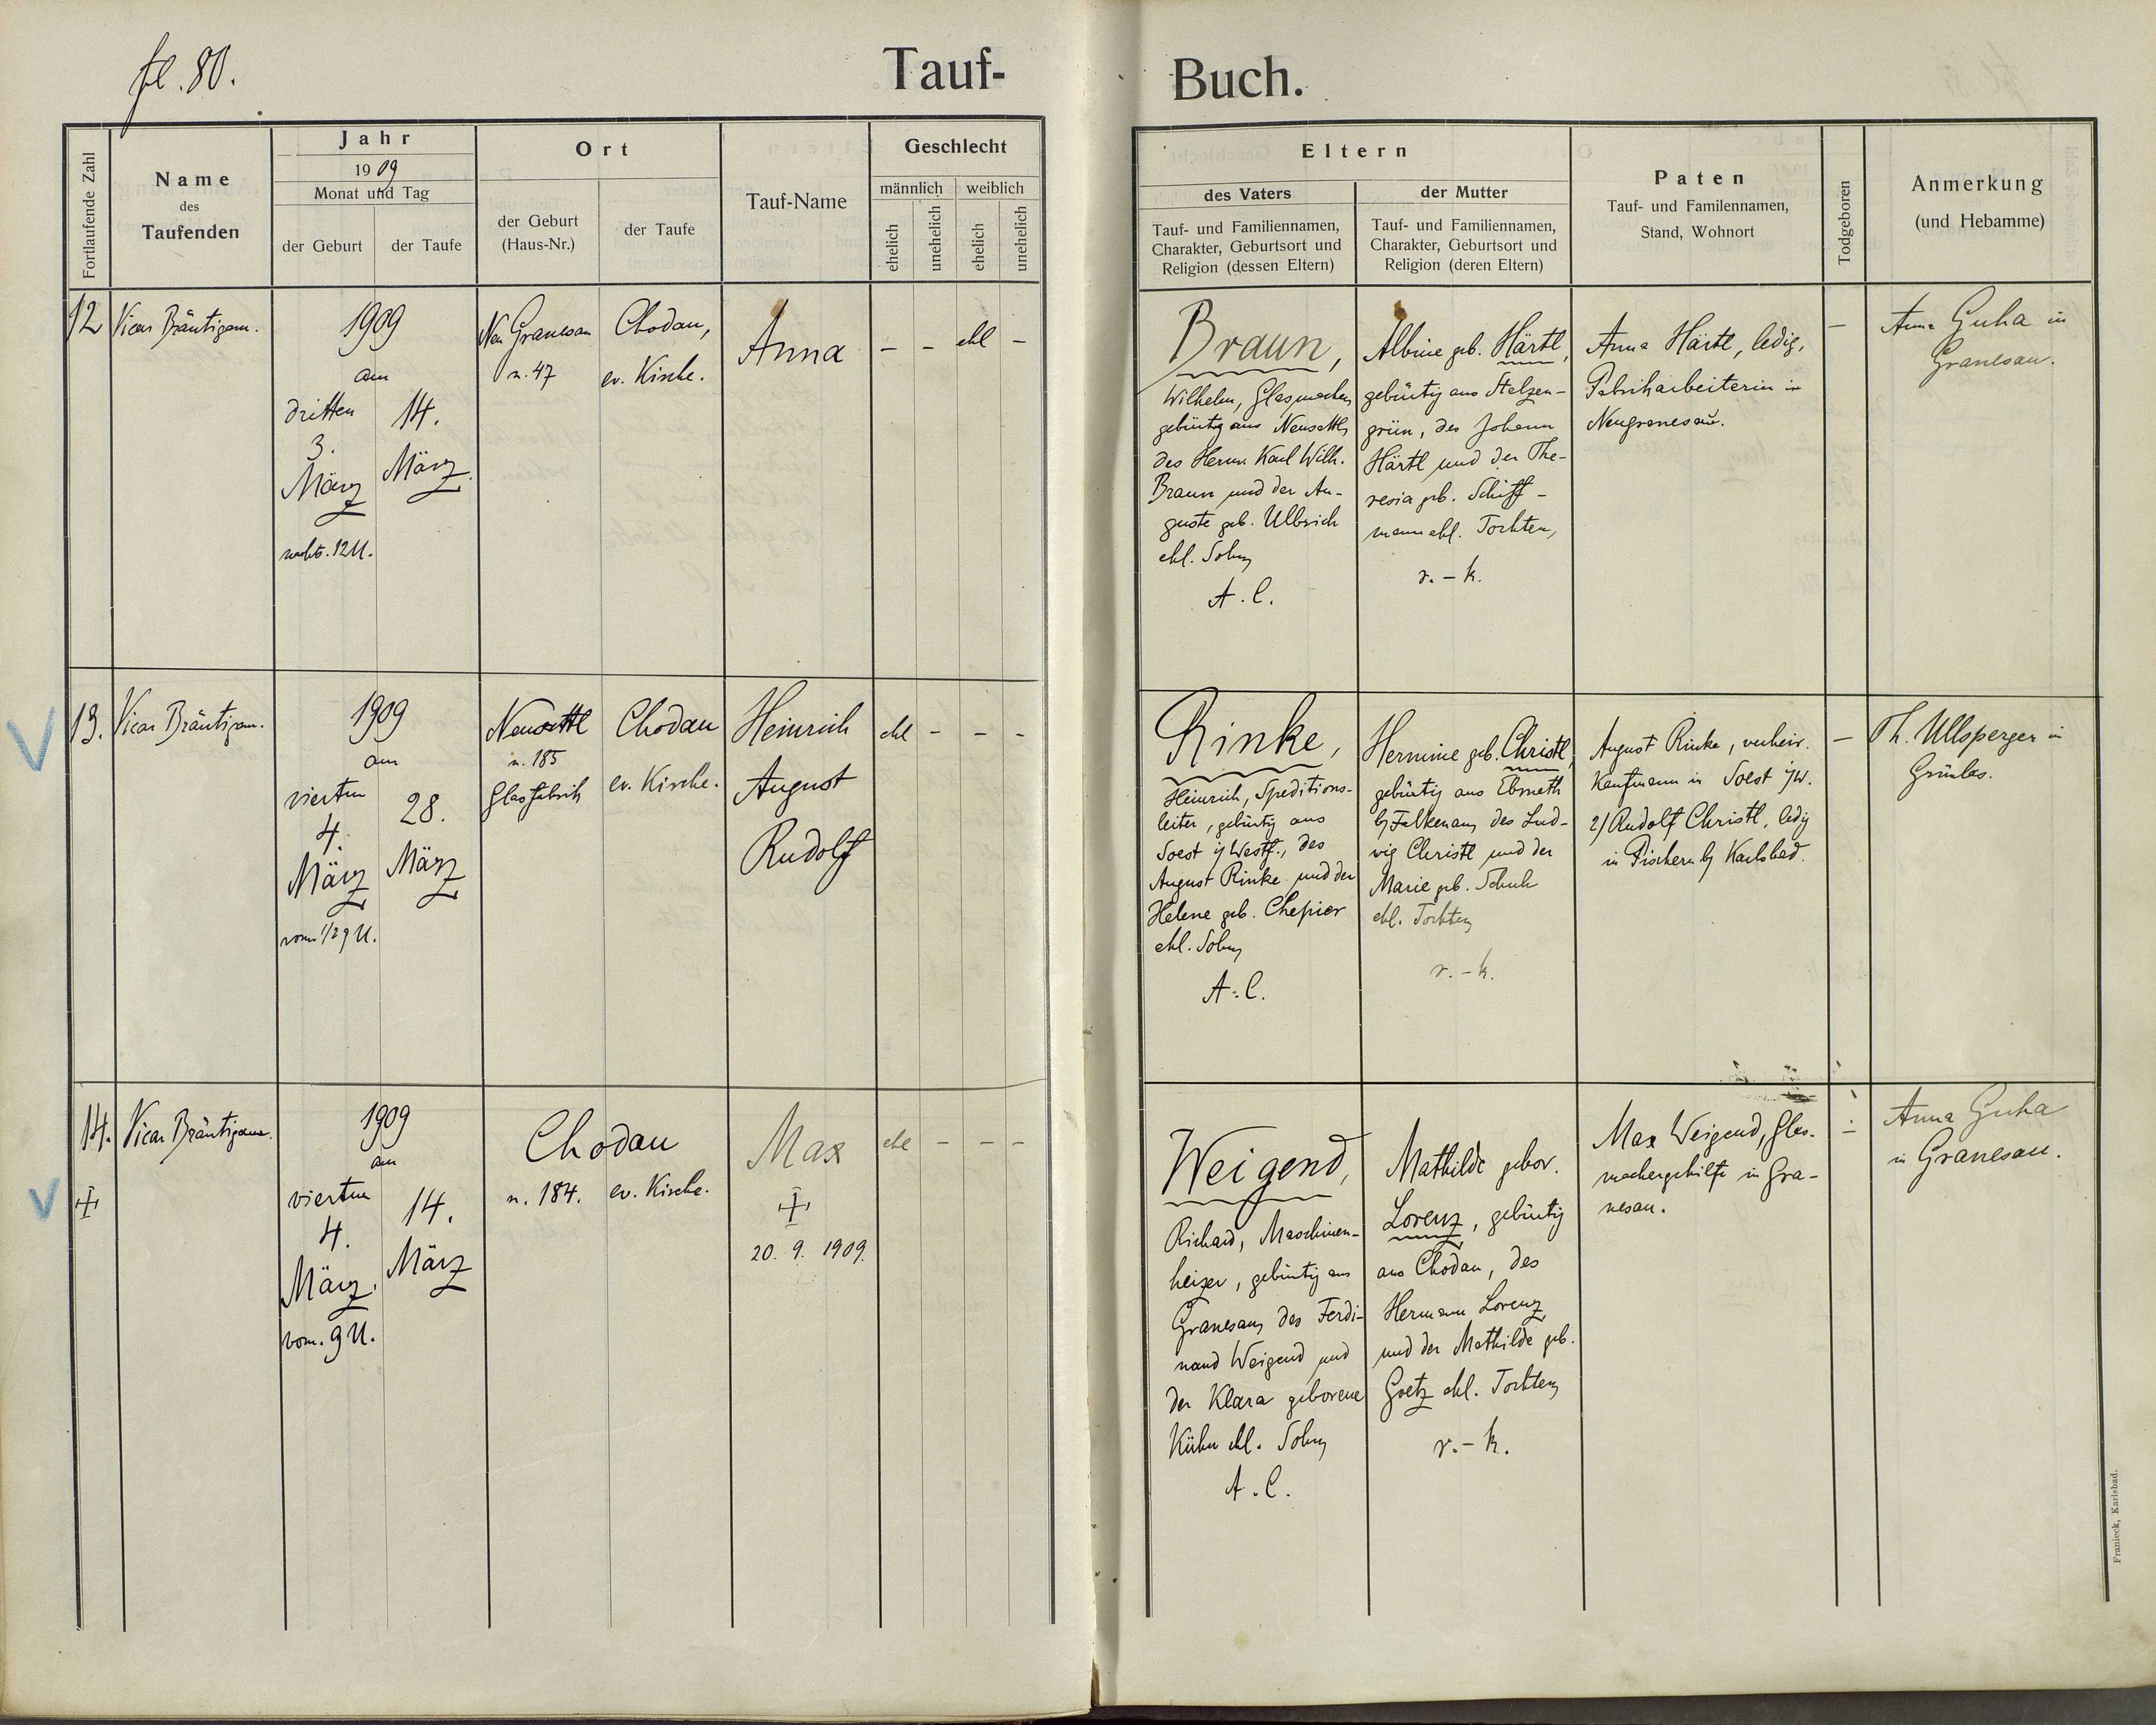 fl. 80.
Tauf-
Buch.
Fortlaufende Zahl
Name
des
Taufenden
Jahr
1909
Monat und Tag
der Geburt
der Taufe
Ort
der Geburt
(Haus-Nr.)
der Taufe
Tauf-Name
Geschlecht
männlich
weiblich
ehelich
unehelich
ehelich
unehelich
Eltern
des Vaters
Tauf- und Familiennamen,
Charakter, Geburtsort und
Religion (dessen Eltern)
der Mutter
Tauf- und Familiennamen,
Charakter, Geburtsort und
Religion (deren Eltern)
Paten
Tauf- und Familennamen,
Stand, Wohnort
Todgeboren
Anmerkung
(und Hebamme)
12
Vicar Bräutigam.
1909
am
dritten
3.
März
nachts. 12 U.
14.
März
Neu Granesau
n. 47
Chodau,
ev. Kirche.
Anna
- - ehl -
Braun,
Wilhelm, Glasmacher
gebürtig aus Neusattl,
des Herm. Karl Wilh.
Braun und der Au-
guste geb. Ulbrich
ehl. Sohn
A. C.
Albine geb. Härtl,
gebürtig aus Stelzen-
grün, des Johann
Härtl und der The-
resia geb. Schiff-
mann ehl. Tochter,
r. - k.
Anna Härtl, ledig,
Fabriksarbeiterin in
Neugranesau.
-
Anna Guha in
Granesau.
13.
Vicar Bräutigam.
1909
am
vierten
4.
März
vorm. 1/2 9 U.
28.
März
Neusattl
n. 185
Glasfabrik
Chodau
ev. Kirche.
Heinrich
August
Rudolf
ehl - - -
Rinke,
Heinrich, Speditions-
leiter, gebürtig aus
Soest i/ Westf., des
August Rinke und der
Helene geb. Chepier
ehl. Sohn
A. C.
Hermine geb. Christl,
gebürtig aus Ebmeth
b/ Falkenau, des Lud-
wig Christl und der
Marie geb. Schuh
ehl. Tochter
r. - k.
August Rinke, verheir.
Kaufmann in Soest i/W.
2/ Rudolf Christl, ledig
in Fischern b/ Karlsbad.
-
Th. Ullsperger in
Grünlas.
14.
Vicar Bräutigam.
1909
am
vierten
4.
März.
vorm. 9 U.
14.
März
Chodau
n. 184.
ev. Kirche.
Max
20. 9. 1909.
ehl - - -
Weigend,
Richard, Maschinen-
heizer, gebürtig aus
Granesau, des Ferdi-
nand Weigend und
der Klara geborene
Kühn ehl. Sohn
A. C.
Mathilde gebor.
Lorenz, gebürtig
aus Chodau, des
Hermann Lorenz
und der Mathilde geb.
Goetz ehl. Tochter
r. - k.
Max Weigend, Glas-
machergehilfe in Gra-
nesau.
-
Anna Guha
in Granesau.
Franieck, Karlsbad.